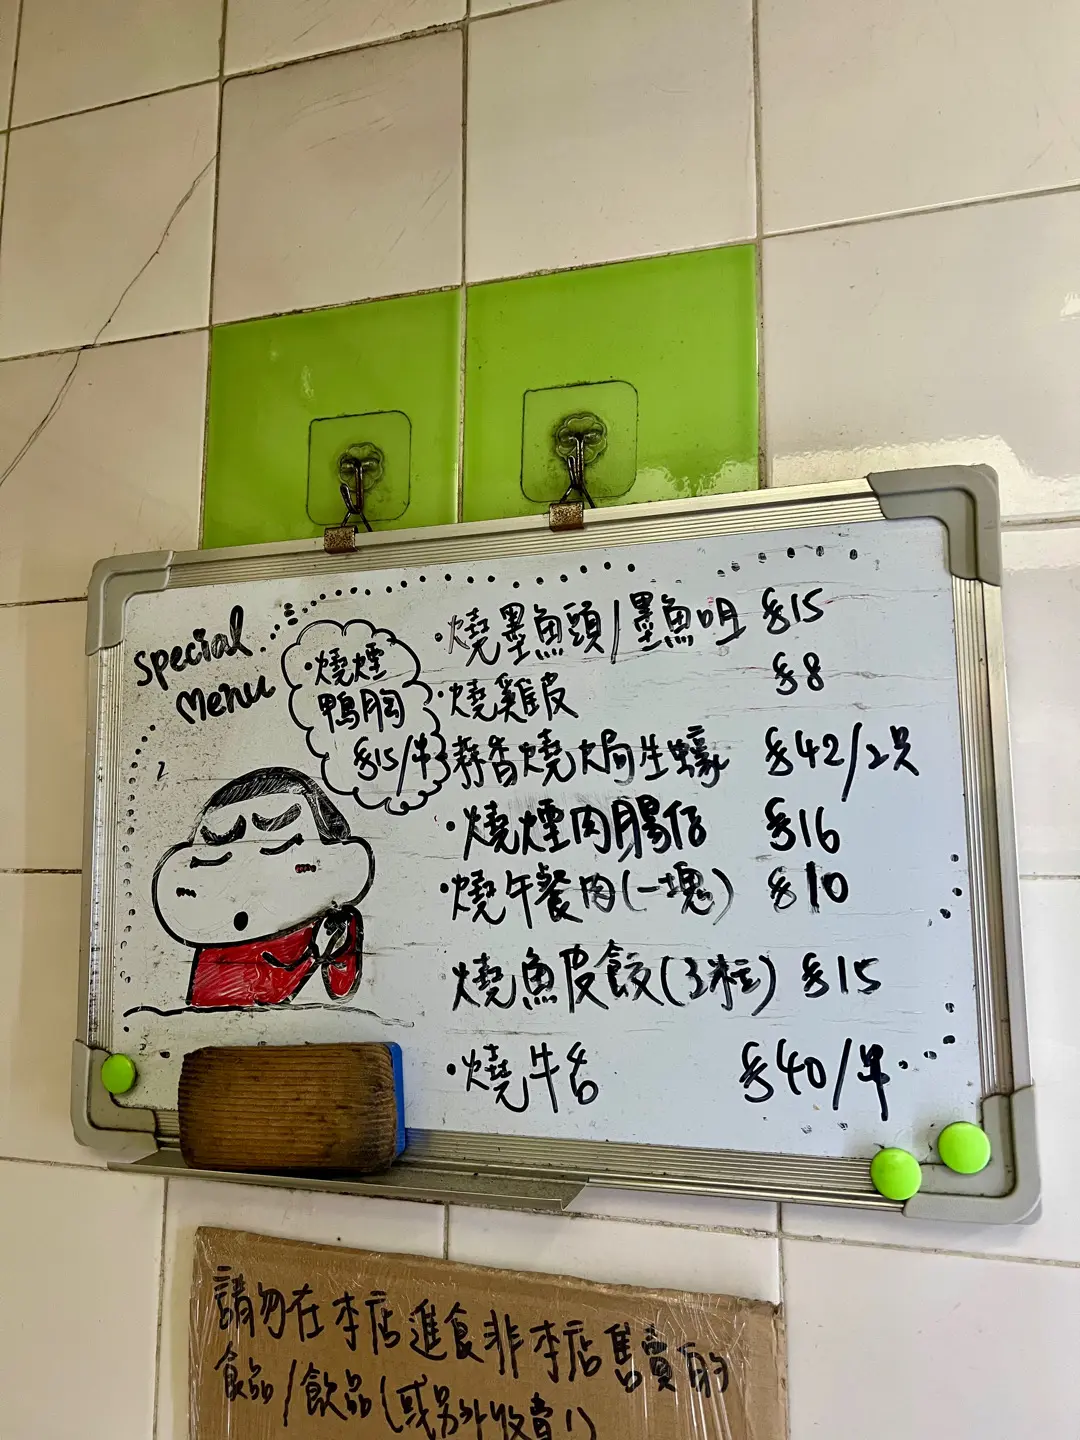 special
menu
·燒煙
鴨胸
$15/串
·燒墨魚頭/墨魚咀 $15
·燒雞皮 $8
蒜香燒焗生蠔 $42/2只
·燒煙肉腸仔 $16
·燒午餐肉(一塊) $10
燒魚皮餃(3粒) $15
·燒牛舌 $40/串
請勿在本店進食非本店售賣的
食品/飲品(或另外收費!)